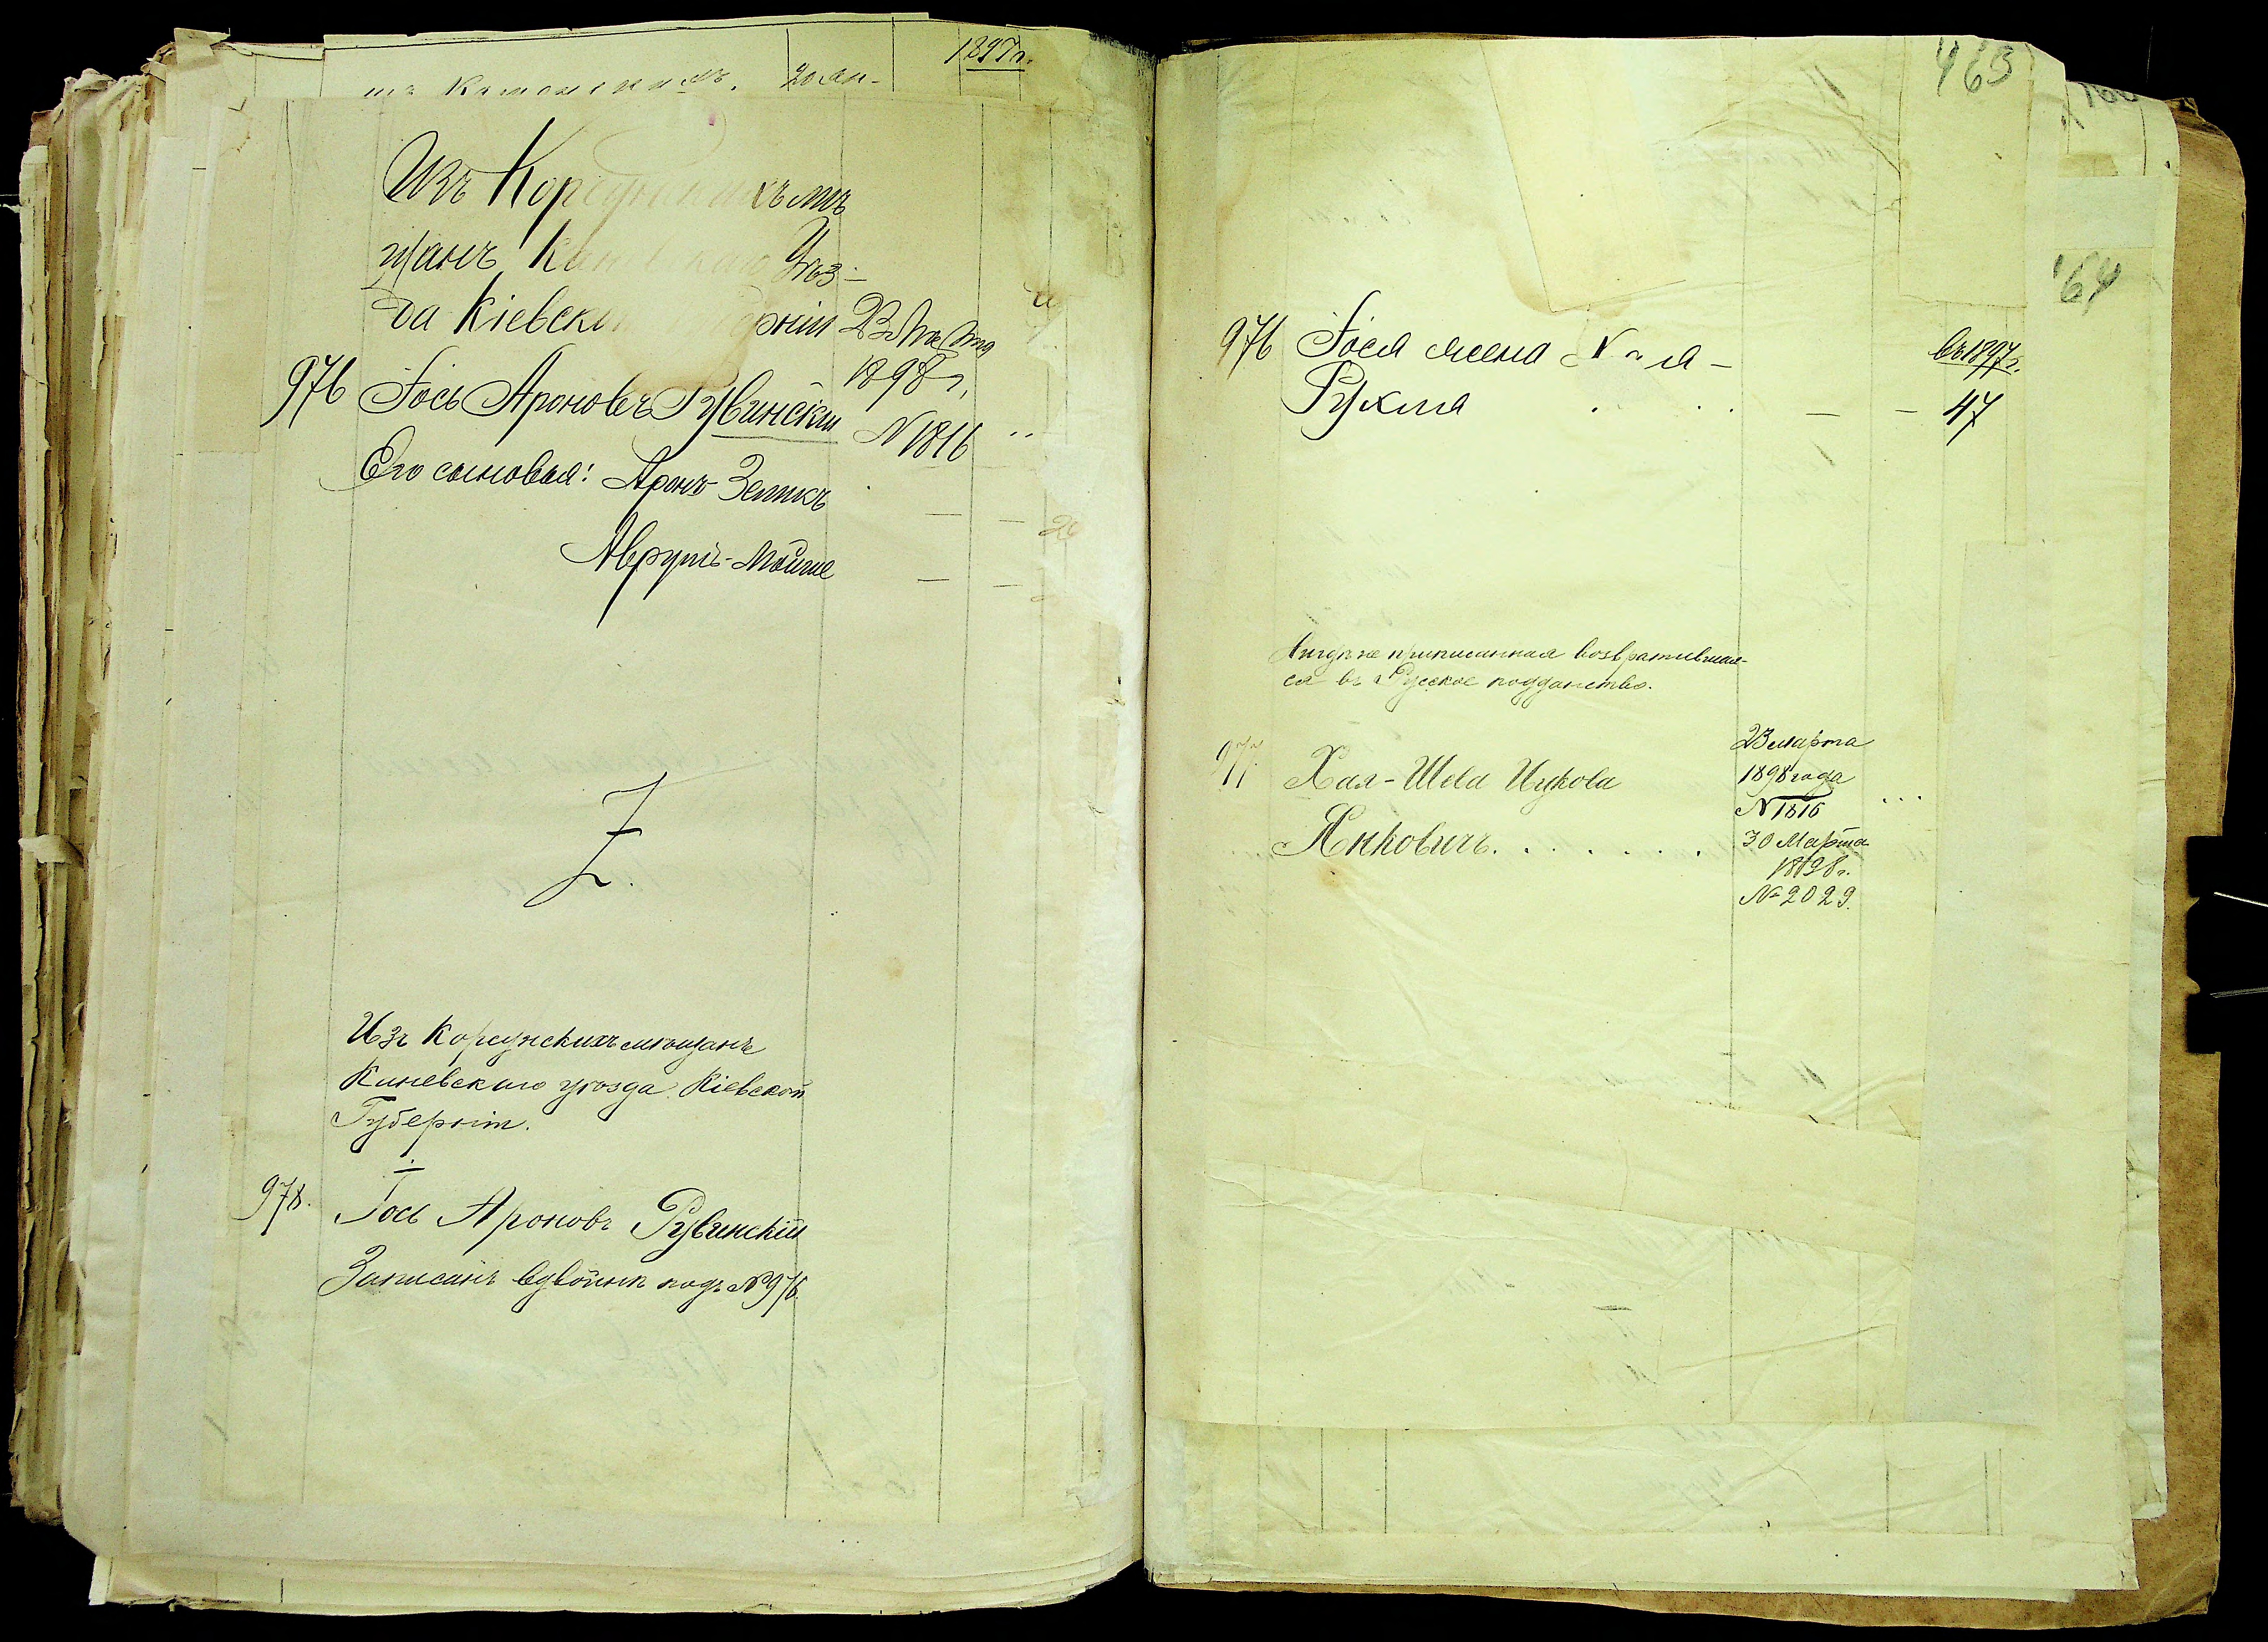 1897 г.
Изъ Корсунскихъ мѣ
щанъ Каневскаго Уѣз-
да Кіевской Губерніи 23 Марта
1898 г,
976 Іось Ароновъ Рувинскій N 1816
Его сыновья: Аронъ-Зеликъ
Аврумъ-Мойше
Z.
Изъ Корсунскихъ мѣщанъ
Каневскаго уѣзда Кіевской
Губерніи.
978. Іось Ароновъ Рувинскій
Записанъ вдвойнѣ подъ №976
463
164
976 Іося жена
въ 1897 г.
Рухля 47
Нигдѣ не приписанная возвратившая-
ся въ Русское подданство.
977. Хая-Шева Ицкова
23 марта
1898 года
N 1816
Янковичъ.......
30 Марта
1898 г.
№ 2029.